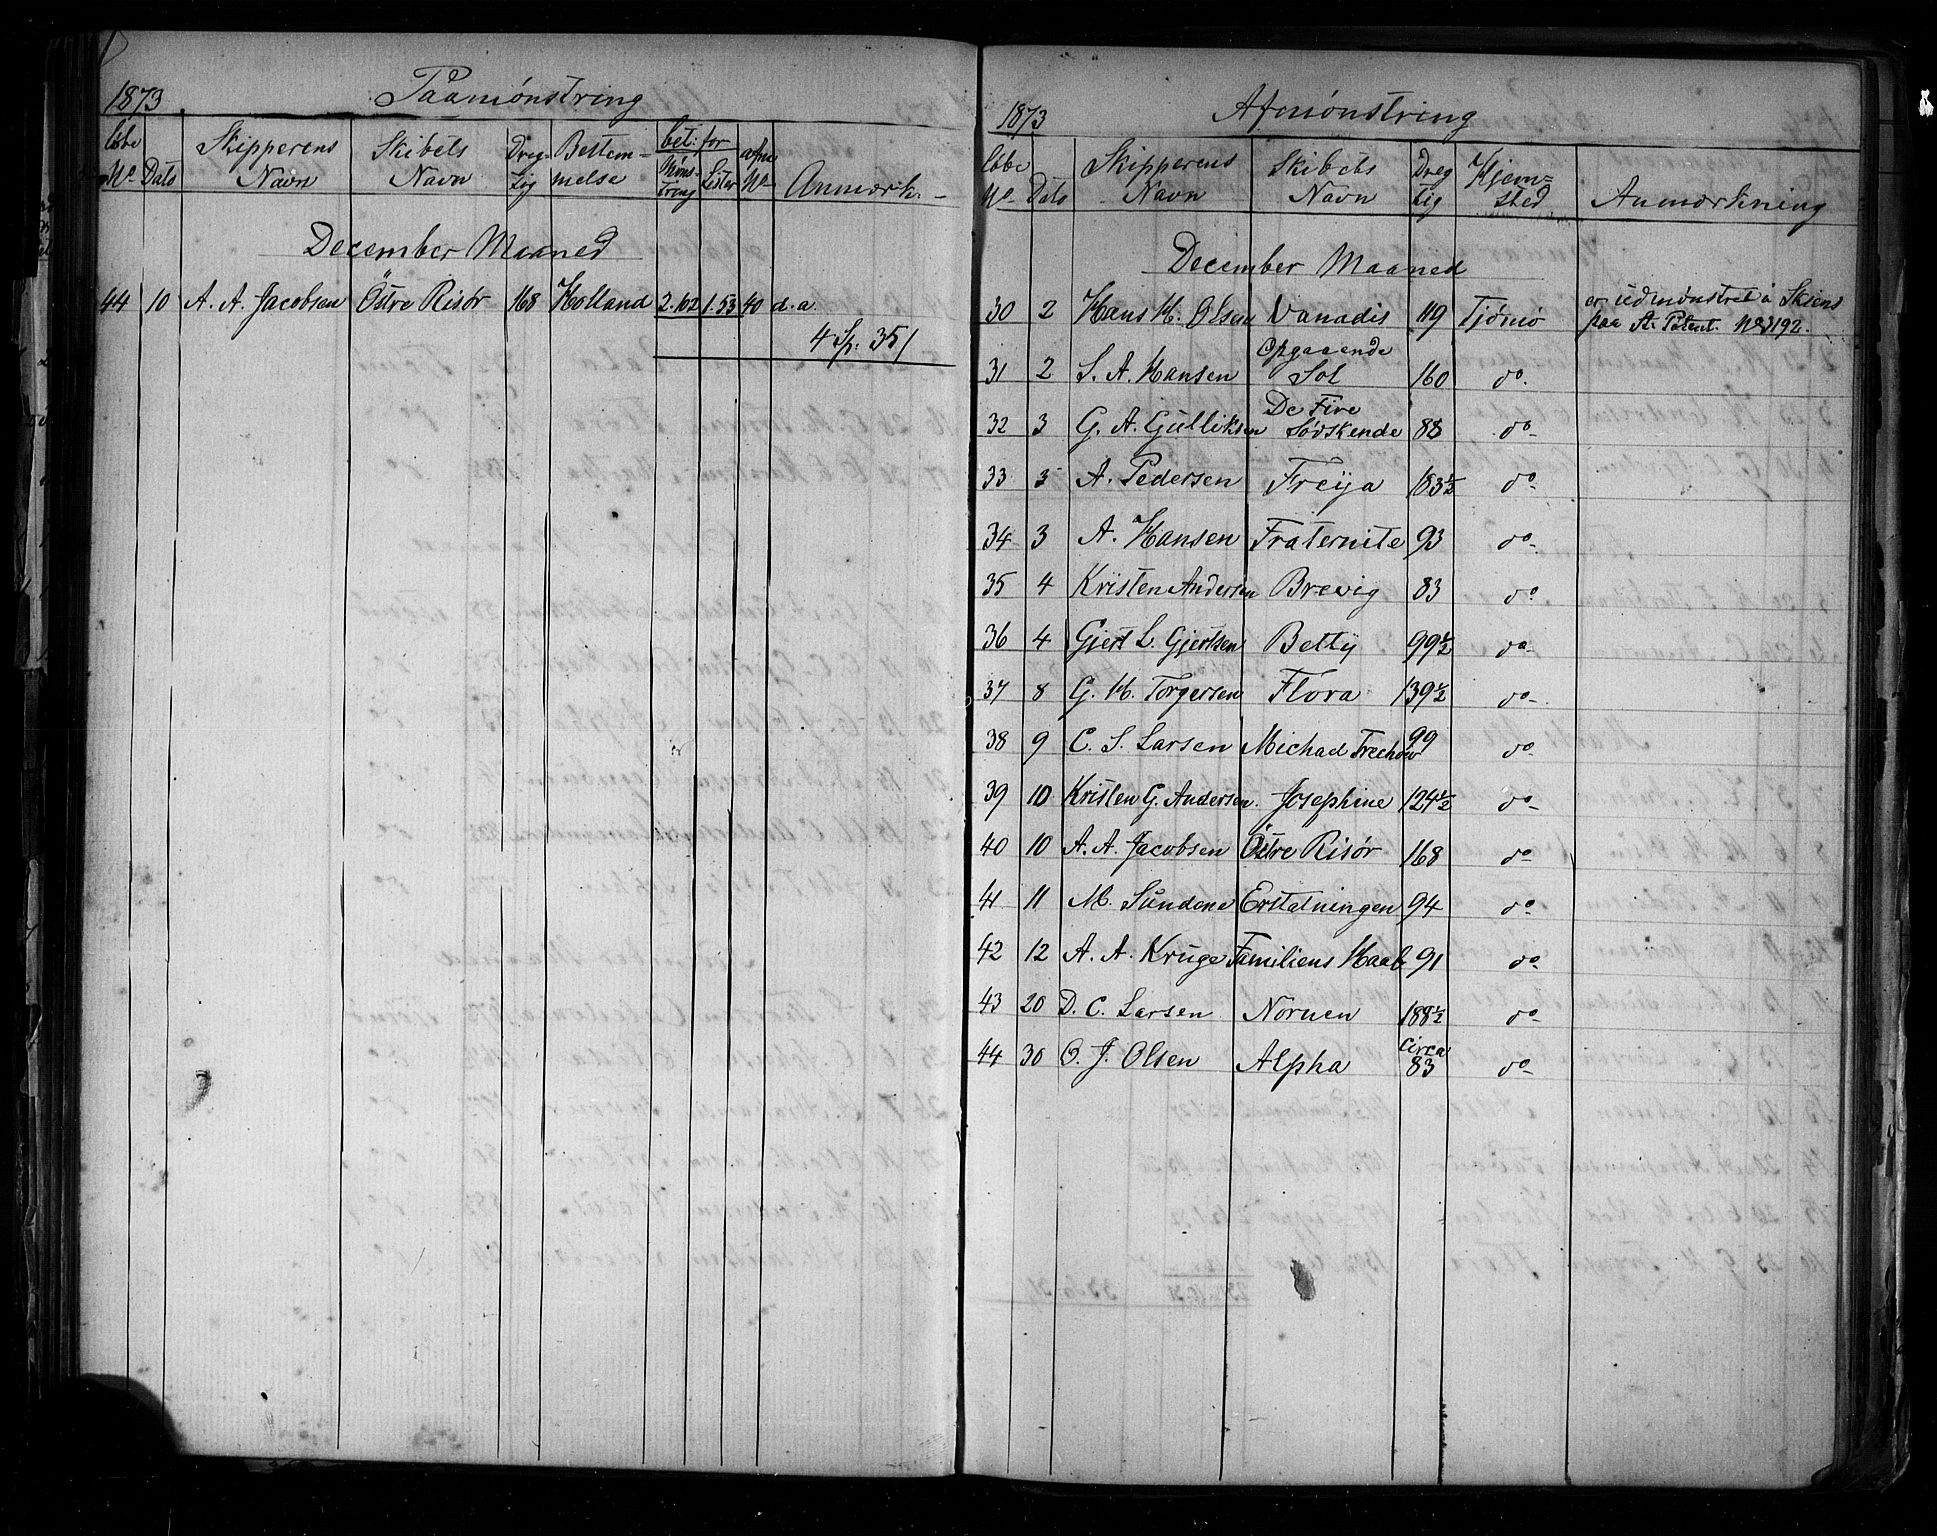 1873. Paamönstring
Løbe No Dato Skipperens Navn Skibets Navn Dreg- tig Bestem- melse bet: for Møns- tring Lister No Anmærk.
December Maaned
44 10 A. A. Jacobsen Östre Risör 168 Holland 2.102 1.53 40 d.a.
4 Sp. 35/
1873 Afmønstring
Løbe No Dato Skipperens Navn Skibets Navn Dreg tig Hjem= sted Anmærkning
December Maaned
30 2 Hans H. Olsen Vanadis 119 Tjømø er udmønstret i Skiens
paa A. Patent. No 3192.
31 2 S. A. Hansen Opgaaende Sol 160 do.
32 3 G. A. Gulliksen De Fire Södskende 88 do
33 3 A. Pedersen Freya 183½ do
34 3 A. Hansen Fraternite 93 do
35 4 Kristen Andersen Brevig 83 do
36 4 Gjert L. Gjertsen Betty 99½ do
37 8 G. H. Torgersen Flora 139½ do
38 9 C. S. Larsen Michael Trechow 99 do
39 10 Kristen G. Andersen. Josephine 124½ do
40 10 A. A. Jacobsen Östre Risör 168 do
41 11 M. Sundene Erstatningen 94 do
42 12 A. A. Kruge Familiens Haab 91 do
43 20 D. C. Larsen Nornen 188½ do
44 30 O. J. Olsen Alpha circa 83 do